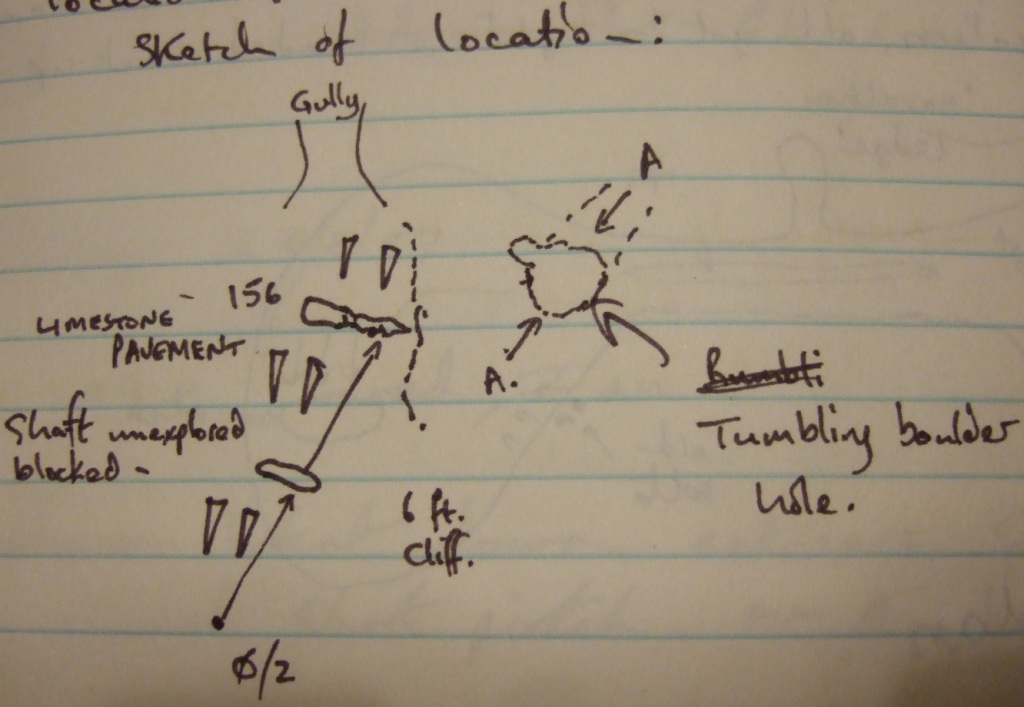 Sketch of location:
Gully
A
156
LIMESTONE
PAVEMENT
A.
Tumbling boulder
hole.
Shaft unexplored
blocked -
6 ft.
Cliff.
Ø/2